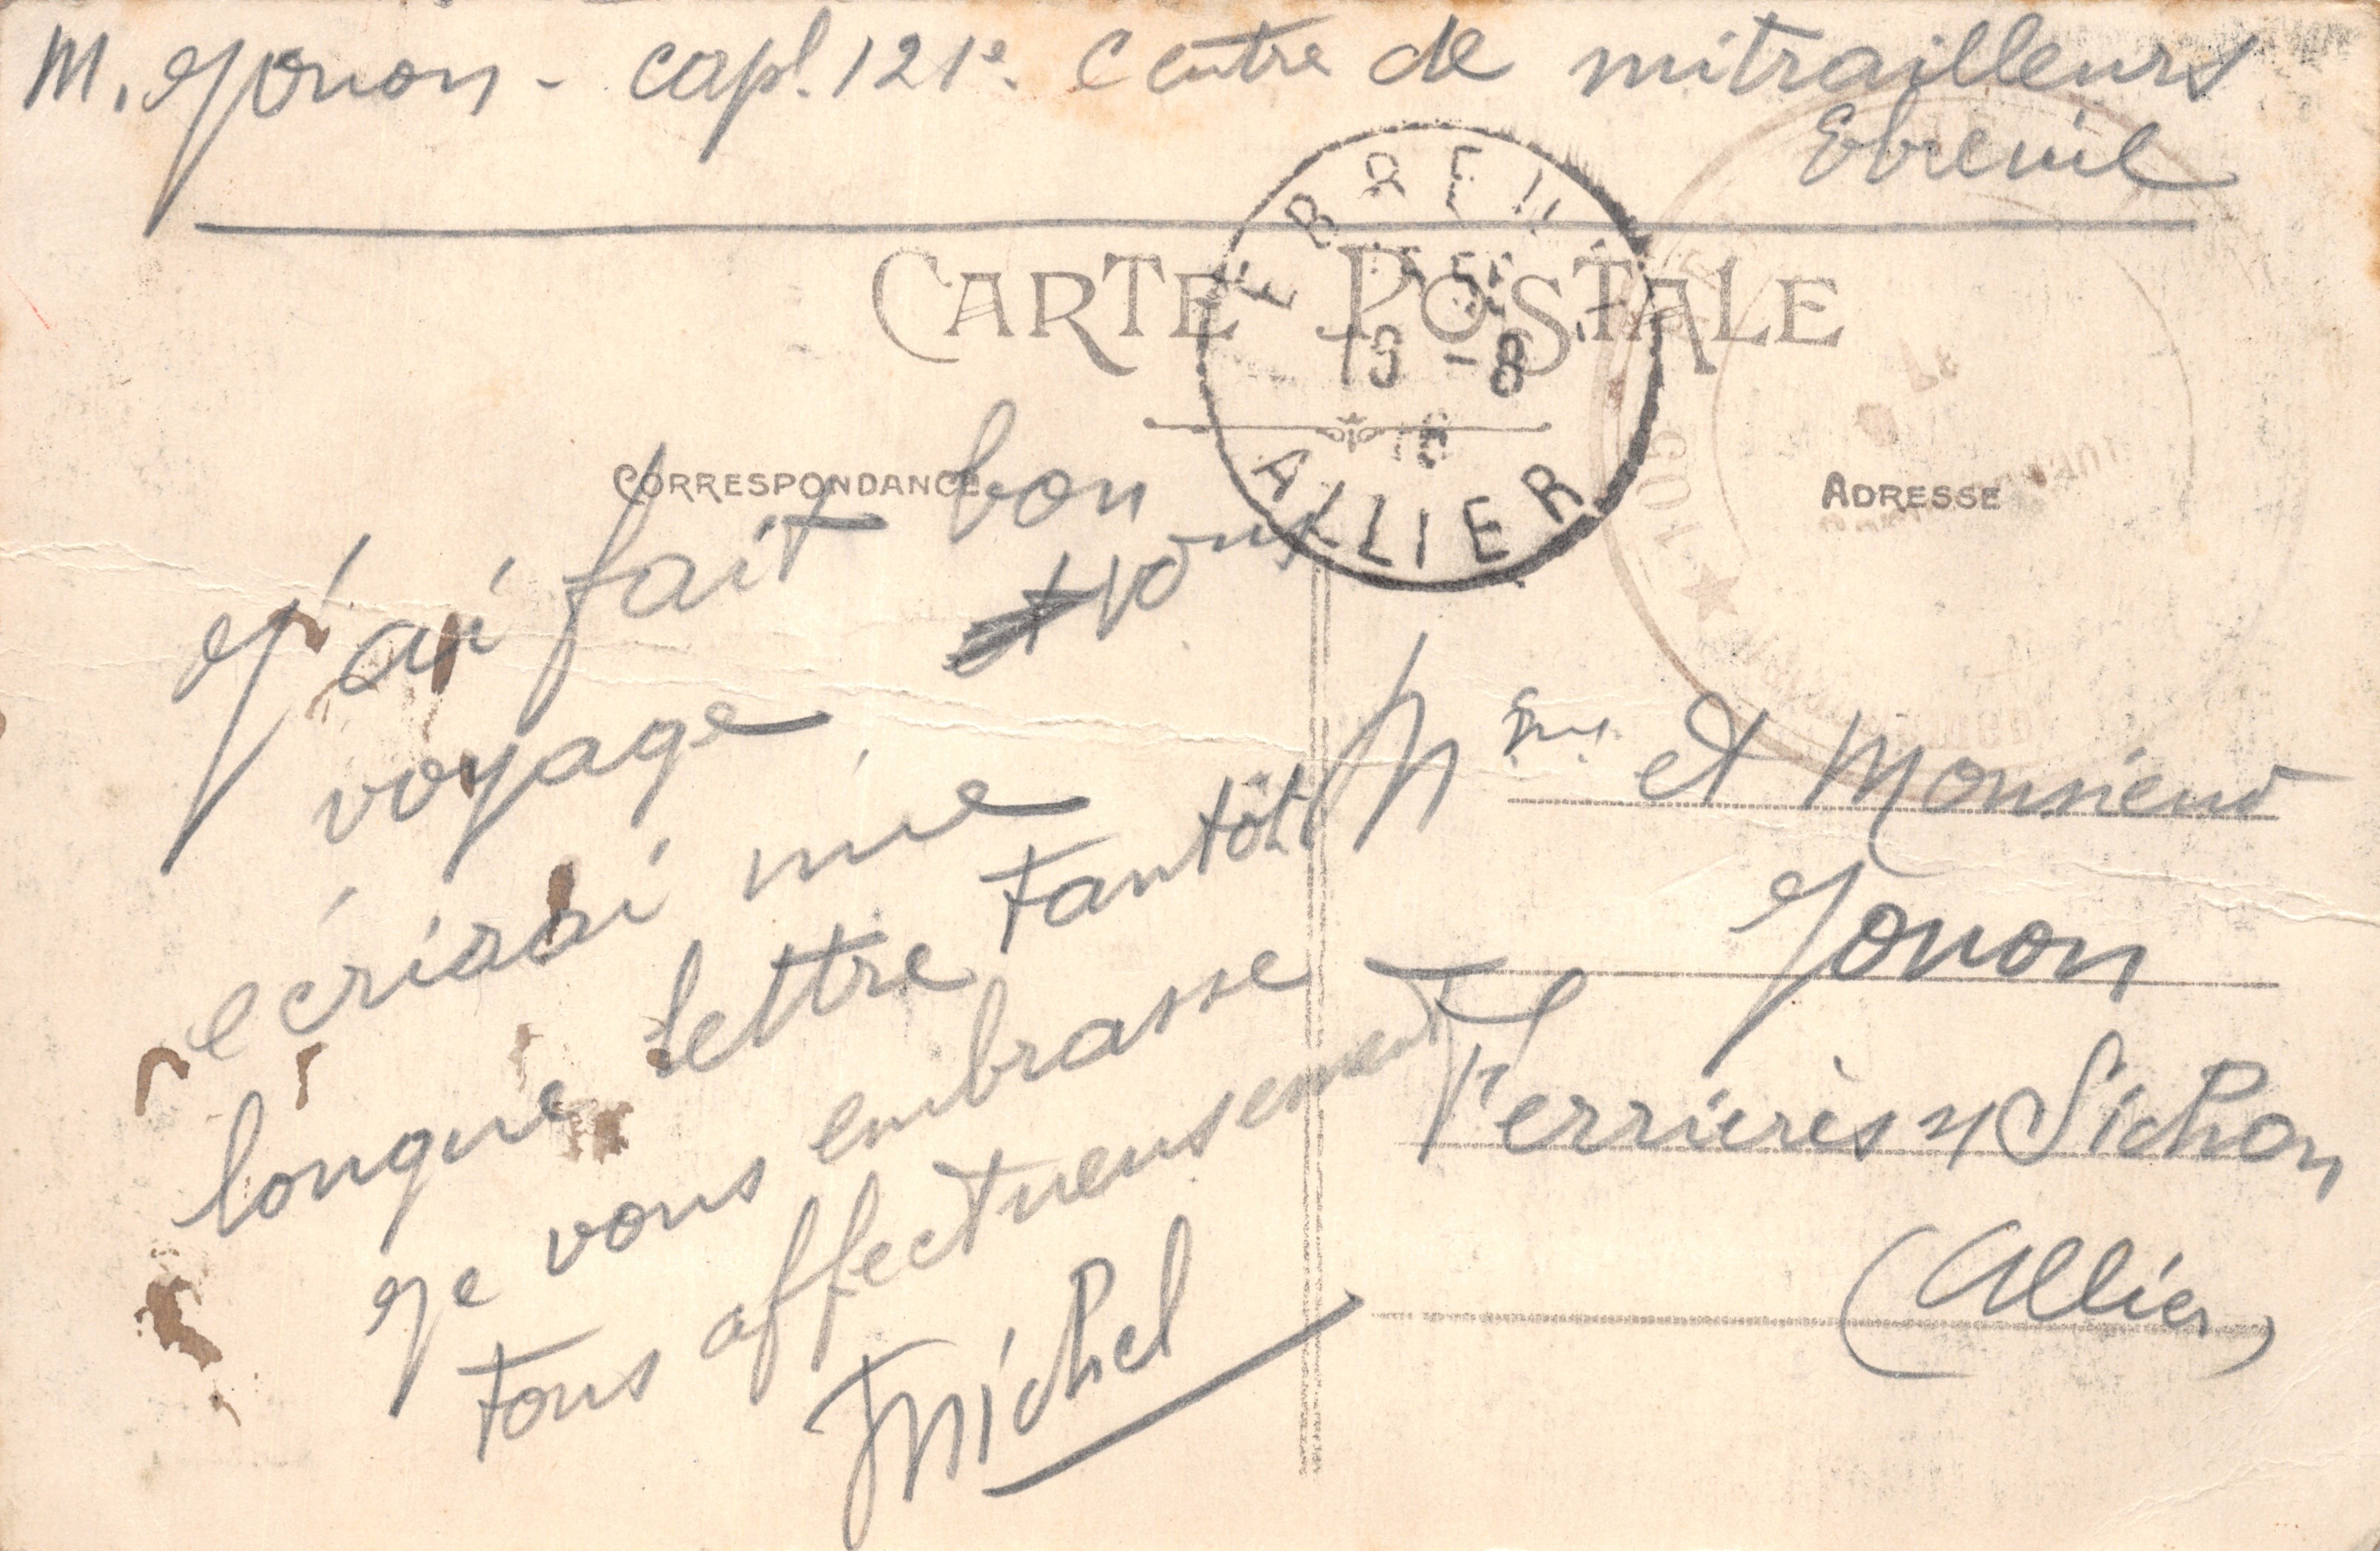 M. Jouon - capl. 121e. Centre de mitrailleurs
Ebreuil
CARTE POSTALE
EBREUIL
13 -8
18
ALLIER
CORRESPONDANCE
ADRESSE
J'ai fait bon
voyage vous
écrirai une
longue lettre tantôt
Je vous embrasse
tous affectueusement
Michel
Mme et Monsieur
Jouon
Ferrières s/ Sichon
(Allier)